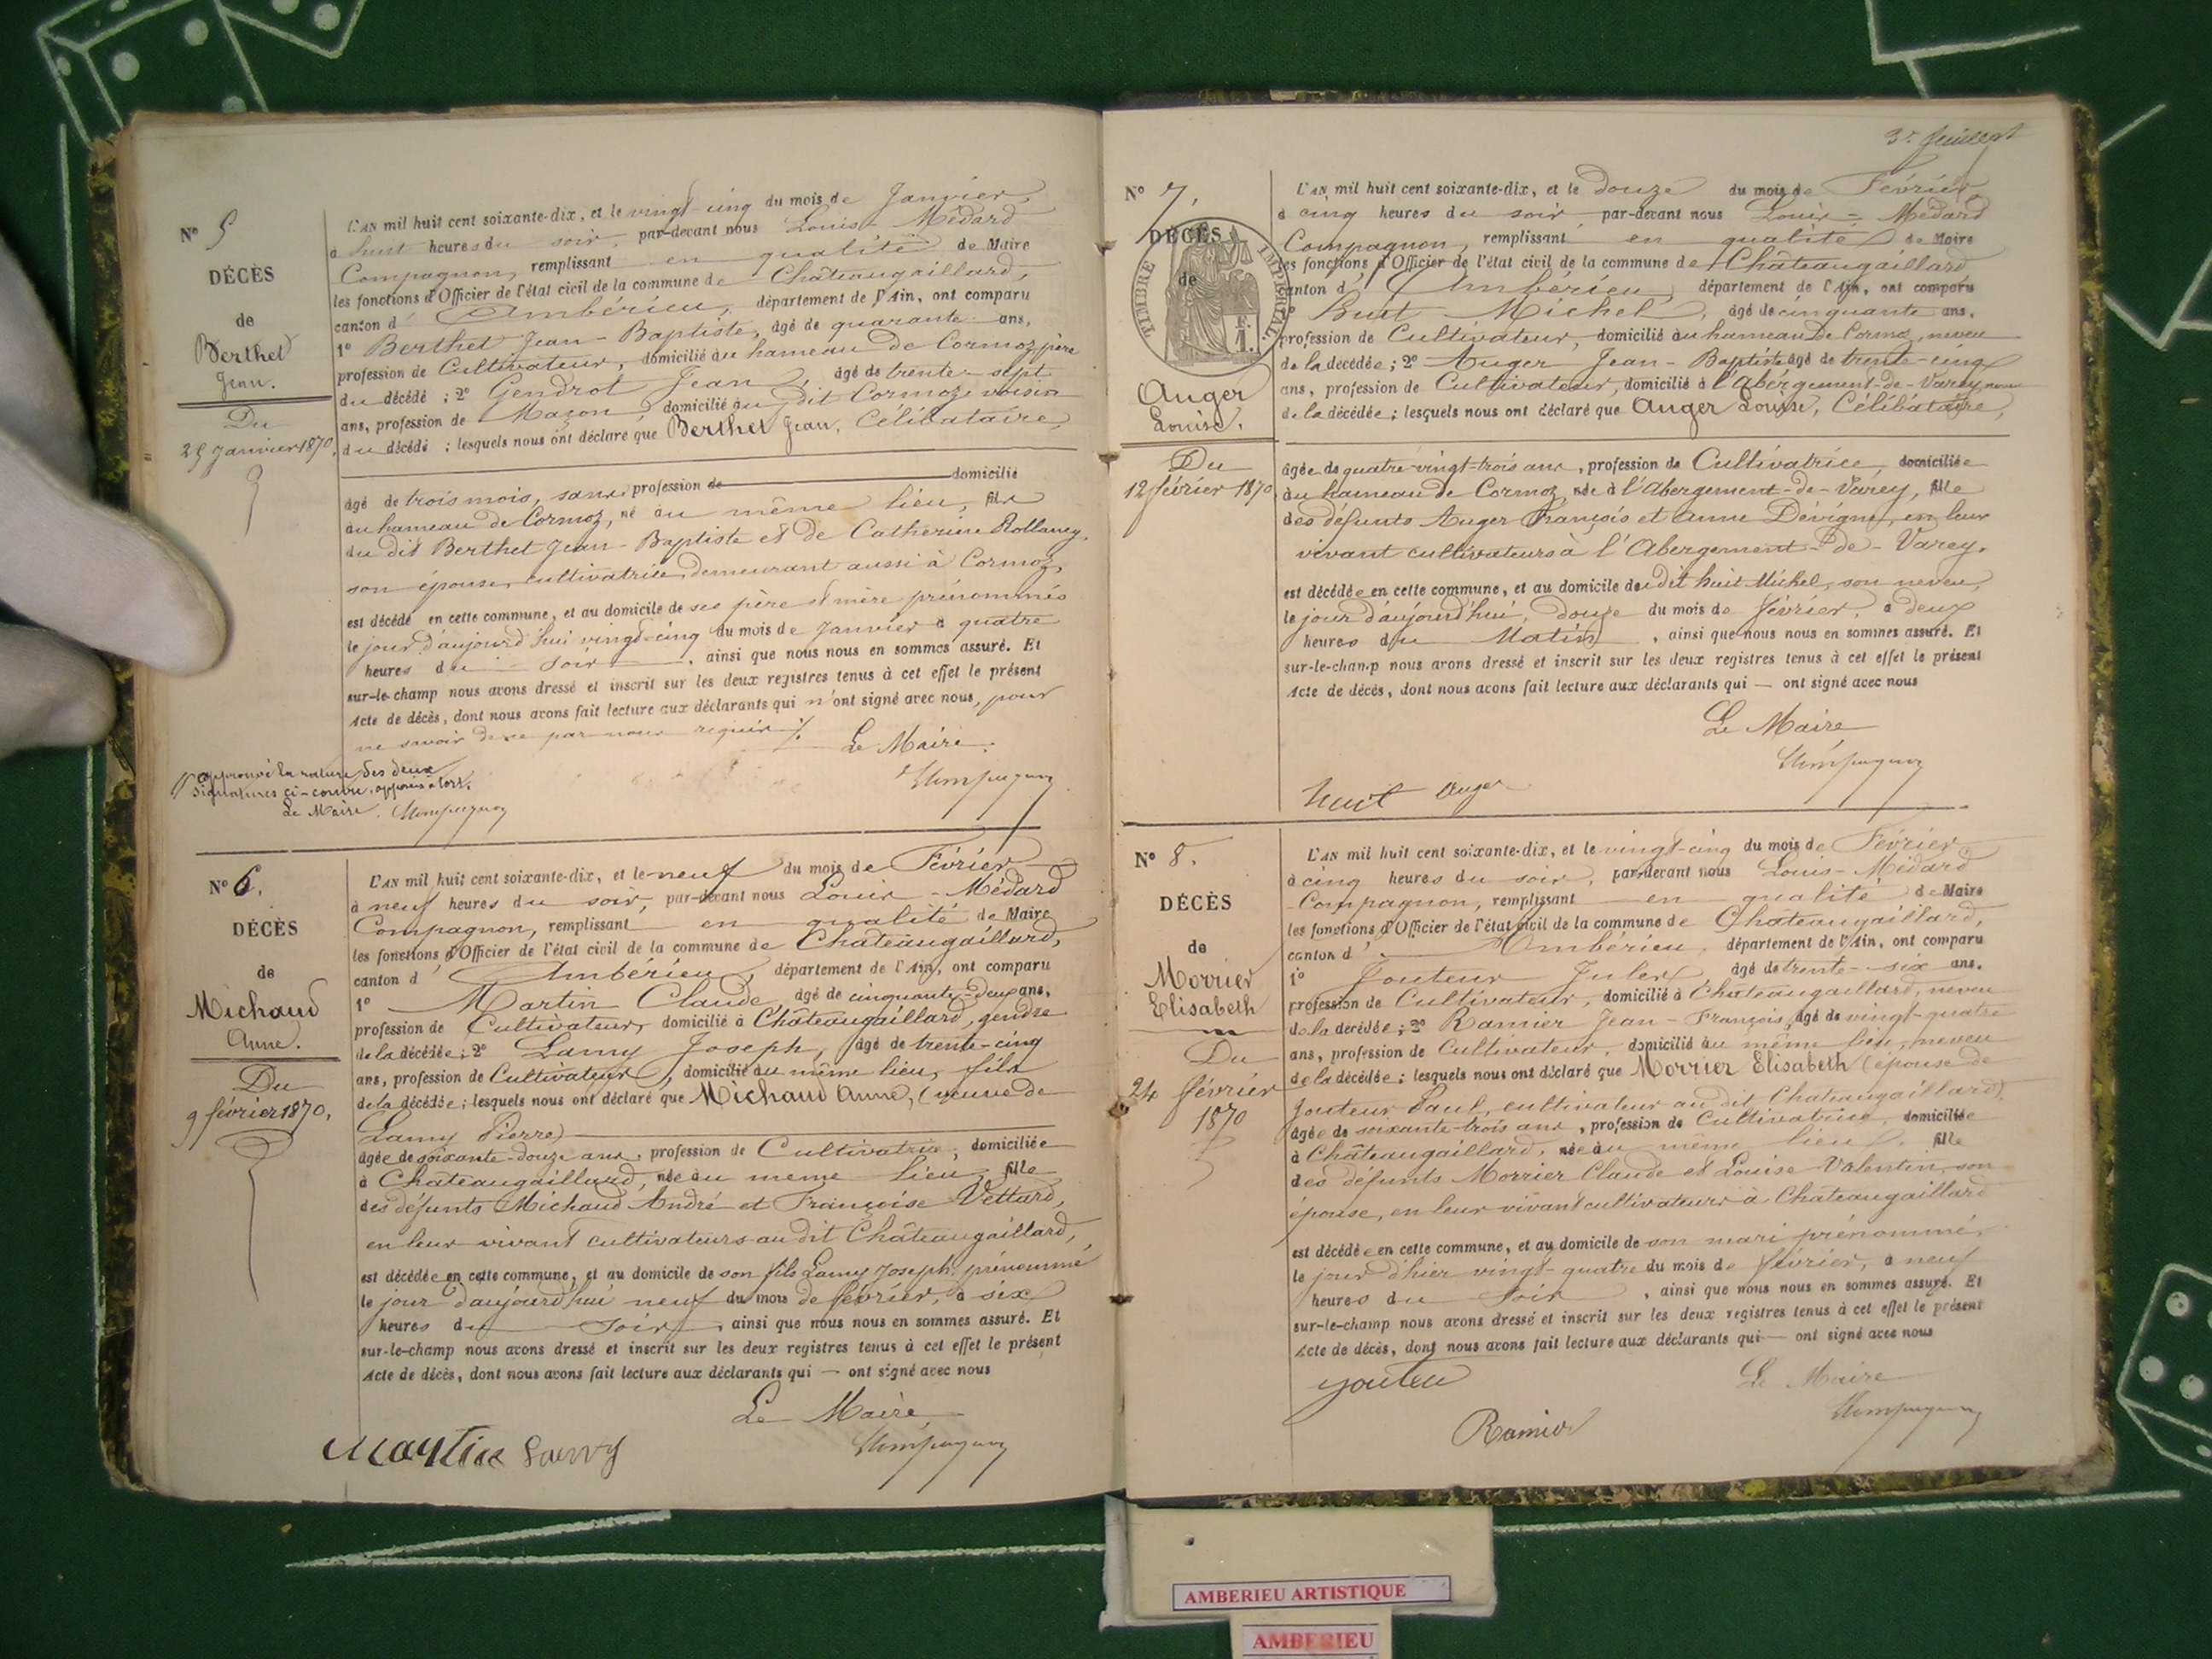 N° 5
DÉCÈS
de
Berthet
Jean.
Du
25 Janvier 1870.
L'AN mil huit cent soixante-dix, et le vingt-cinq du mois de Janvier
à huit heures du soir, par-devant nous Louis-Médard
Compagnon, remplissant en qualité de Maire
les fonctions d'Officier de l'état civil de la commune de Châteaugaillard,
canton d'Ambérieu, département de l'Ain, ont comparu
1° Berthet Jean-Baptiste, âgé de quarante ans,
profession de Cultivateur, domicilié au hameau de Cormoz, père
du décédé ; 2° Gendrot Jean, âgé de trente-sept
ans, profession de Maçon, domicilié au dit Cormoz, voisin
du décédé ; lesquels nous ont déclaré que Berthet Jean, Célibataire,
âgé de trois mois, sans profession de domicilié
au hameau de Cormoz, né au même lieu, fils
du dit Berthet Jean-Baptiste et de Catherine
son épouse, cultivatrice, demeurant aussi à Cormoz,
est décédé en cette commune, et au domicile de ses père et mère prénommés
le jour d'aujourd'hui vingt-cinq du mois de Janvier à quatre
heures du soir, ainsi que nous nous en sommes assuré. Et
sur-le-champ nous avons dressé et inscrit sur les deux registres tenus à cet effet le présent
Acte de décès, dont nous avons fait lecture aux déclarants qui n'ont signé avec nous, pour
ne savoir de ce par nous requis ./.
Le Maire.
Compagnon
approuvé la rature des deux
signatures ci-contre, apposées à tort.
Le Maire. Compagnon
N° 6.
DÉCÈS
de
Michaud
Anne.
Du
9 février 1870.
L'AN mil huit cent soixante-dix, et le neuf du mois de Février
à neuf heures du soir, par-devant nous Louis-Médard
Compagnon, remplissant en qualité de Maire
les fonctions d'Officier de l'état civil de la commune de Châteaugaillard,
canton d'Ambérieu, département de l'Ain, ont comparu
1° Martin Claude, âgé de cinquante-deux ans,
profession de Cultivateur, domicilié à Châteaugaillard, gendre
de la décédée ; 2° Lamy Joseph, âgé de trente-cinq
ans, profession de Cultivateur, domicilié au même lieu, fils
de la décédée ; lesquels nous ont déclaré que Michaud Anne, (veuve de
Lamy Pierre)
âgée de soixante-douze ans, profession de Cultivatrice, domiciliée
à Châteaugaillard, née au même lieu, fille
des défunts Michaud André et Françoise Vettard,
en leur vivant cultivateurs au dit Châteaugaillard,
est décédée en cette commune, et au domicile de son fils Lamy Joseph, prénommé
le jour d'aujourd'hui neuf du mois de février, à six
heures du soir, ainsi que nous nous en sommes assuré. Et
sur-le-champ nous avons dressé et inscrit sur les deux registres tenus à cet effet le présent
Acte de décès, dont nous avons fait lecture aux déclarants qui — ont signé avec nous
Le Maire
Martin Lamy Compagnon
3e feuillet
N° 7.
DÉCÈS
de
TIMBRE IMPERIAL
Auger
Louise.
Du
12 février 1870
L'AN mil huit cent soixante-dix, et le douze du mois de Février
à cinq heures du soir par-devant nous Louis-Médard
Compagnon, remplissant en qualité de Maire
les fonctions d'Officier de l'état civil de la commune de Châteaugaillard
canton d'Ambérieu, département de l'Ain, ont comparu
1° Huit Michel, âgé de cinquante ans,
profession de Cultivateur, domicilié au hameau de Cormoz, neveu
de la décédée ; 2° Auger Jean-Baptiste âgé de trente-cinq
ans, profession de Cultivateur, domicilié à l'Abergement-de-Varey, neveu
de la décédée ; lesquels nous ont déclaré que Auger Louise, Célibataire,
âgée de quatre-vingt-trois ans, profession de Cultivatrice, domiciliée
au hameau de Cormoz, née à l'Abergement-de-Varey, fille
des défunts Auger François et Anne Dévigne, en leur
vivant cultivateurs à l'Abergement-de-Varey.
est décédée en cette commune, et au domicile du dit huit Michel, son neveu,
le jour d'aujourd'hui, douze du mois de février, à deux
heures du Matin, ainsi que nous nous en sommes assuré. Et
sur-le-champ nous avons dressé et inscrit sur les deux registres tenus à cet effet le présent
Acte de décès, dont nous avons fait lecture aux déclarants qui — ont signé avec nous
Le Maire
Compagnon
huit Auger
N° 8.
DÉCÈS
de
Morrier
Elisabeth
Du
24 février
1870
L'AN mil huit cent soixante-dix, et le vingt-cinq du mois de Février
à cinq heures du soir, par-devant nous Louis-Médard
Compagnon, remplissant en qualité de Maire
les fonctions d'Officier de l'état civil de la commune de Chateaugaillard,
canton d'Ambérieu, département de l'Ain, ont comparu
1° Jouteur Jules, âgé de trente-six ans,
profession de Cultivateur, domicilié à Chateaugaillard, neveu
de la décédée ; 2° Ramier Jean-François, âgé de vingt-quatre
ans, profession de Cultivateur, domicilié au même lieu, neveu
de la décédée ; lesquels nous ont déclaré que Morrier Elisabeth (épouse de
Jouteur Paul, cultivateur au dit Chateaugaillard)
âgée de soixante-trois ans, profession de Cultivatrice, domiciliée
à Châteaugaillard, née au même lieu, fille
des défunts Morrier Claude et Louise Valentin, son
épouse, en leur vivant cultivateurs à Chateaugaillard
est décédée en cette commune, et au domicile de son mari prénommé,
le jour d'hier vingt-quatre du mois de février, à neuf
heures du soir, ainsi que nous nous en sommes assuré. Et
sur-le-champ nous avons dressé et inscrit sur les deux registres tenus à cet effet le présent
Acte de décès, dont nous avons fait lecture aux déclarants qui — ont signé avec nous
Le Maire
Jouteur Compagnon
Ramier
AMBERIEU ARTISTIQUE
AMBERIEU